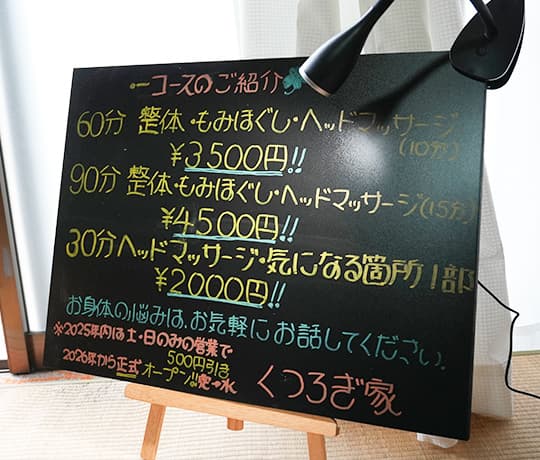 コースのご紹介
60分 整体・もみほぐし・ヘッドマッサージ
(10分)
¥3500円!!
90分 整体・もみほぐし・ヘッドマッサージ(15分)
¥4500円!!
30分ヘッドマッサージ・気になる箇所1部
¥2000円!!
お身体の悩みは、お気軽にお話してください。
※2025年内は土・日のみの営業で
500円引き
2026年から正式オープン!!
くつろぎ家